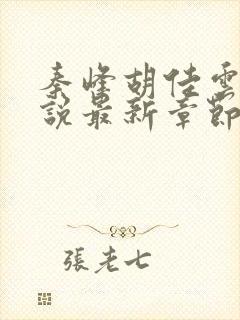 秦峰胡佳雲
說最新章節
張老七